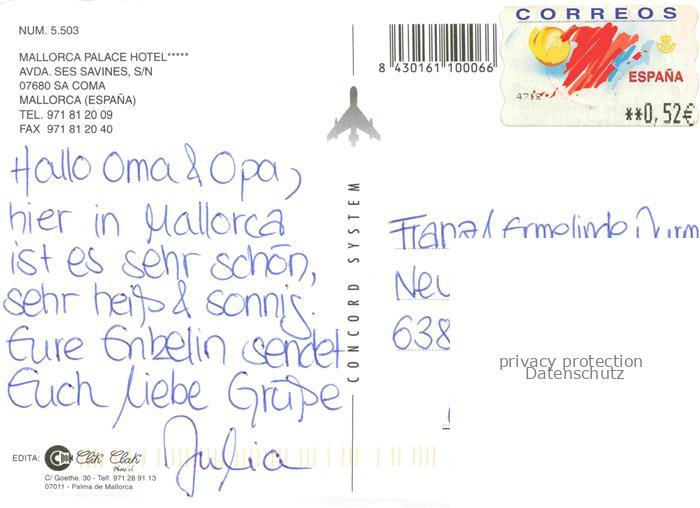 NUM. 5.503
MALLORCA PALACE HOTEL*****
AVDA. SES SAVINES, S/N
07680 SA COMA
MALLORCA (ESPAÑA)
TEL. 971 81 20 09
FAX 971 81 20 40
Hallo Oma & Opa,
hier in Mallorca
ist es sehr schön,
sehr heiß & sonnig.
Eure Enkelin sendet
Euch liebe Grüße
Julia
EDITA:
Clik Clak
C/ Goethe, 30 - Telf. 971 28 91 13
07011 - Palma de Mallorca
CONCORD SYSTEM
8 430161 100066
CORREOS
ESPAÑA
**0,52€
Franz / Ermelinde
Neu
638
privacy protection
Datenschutz